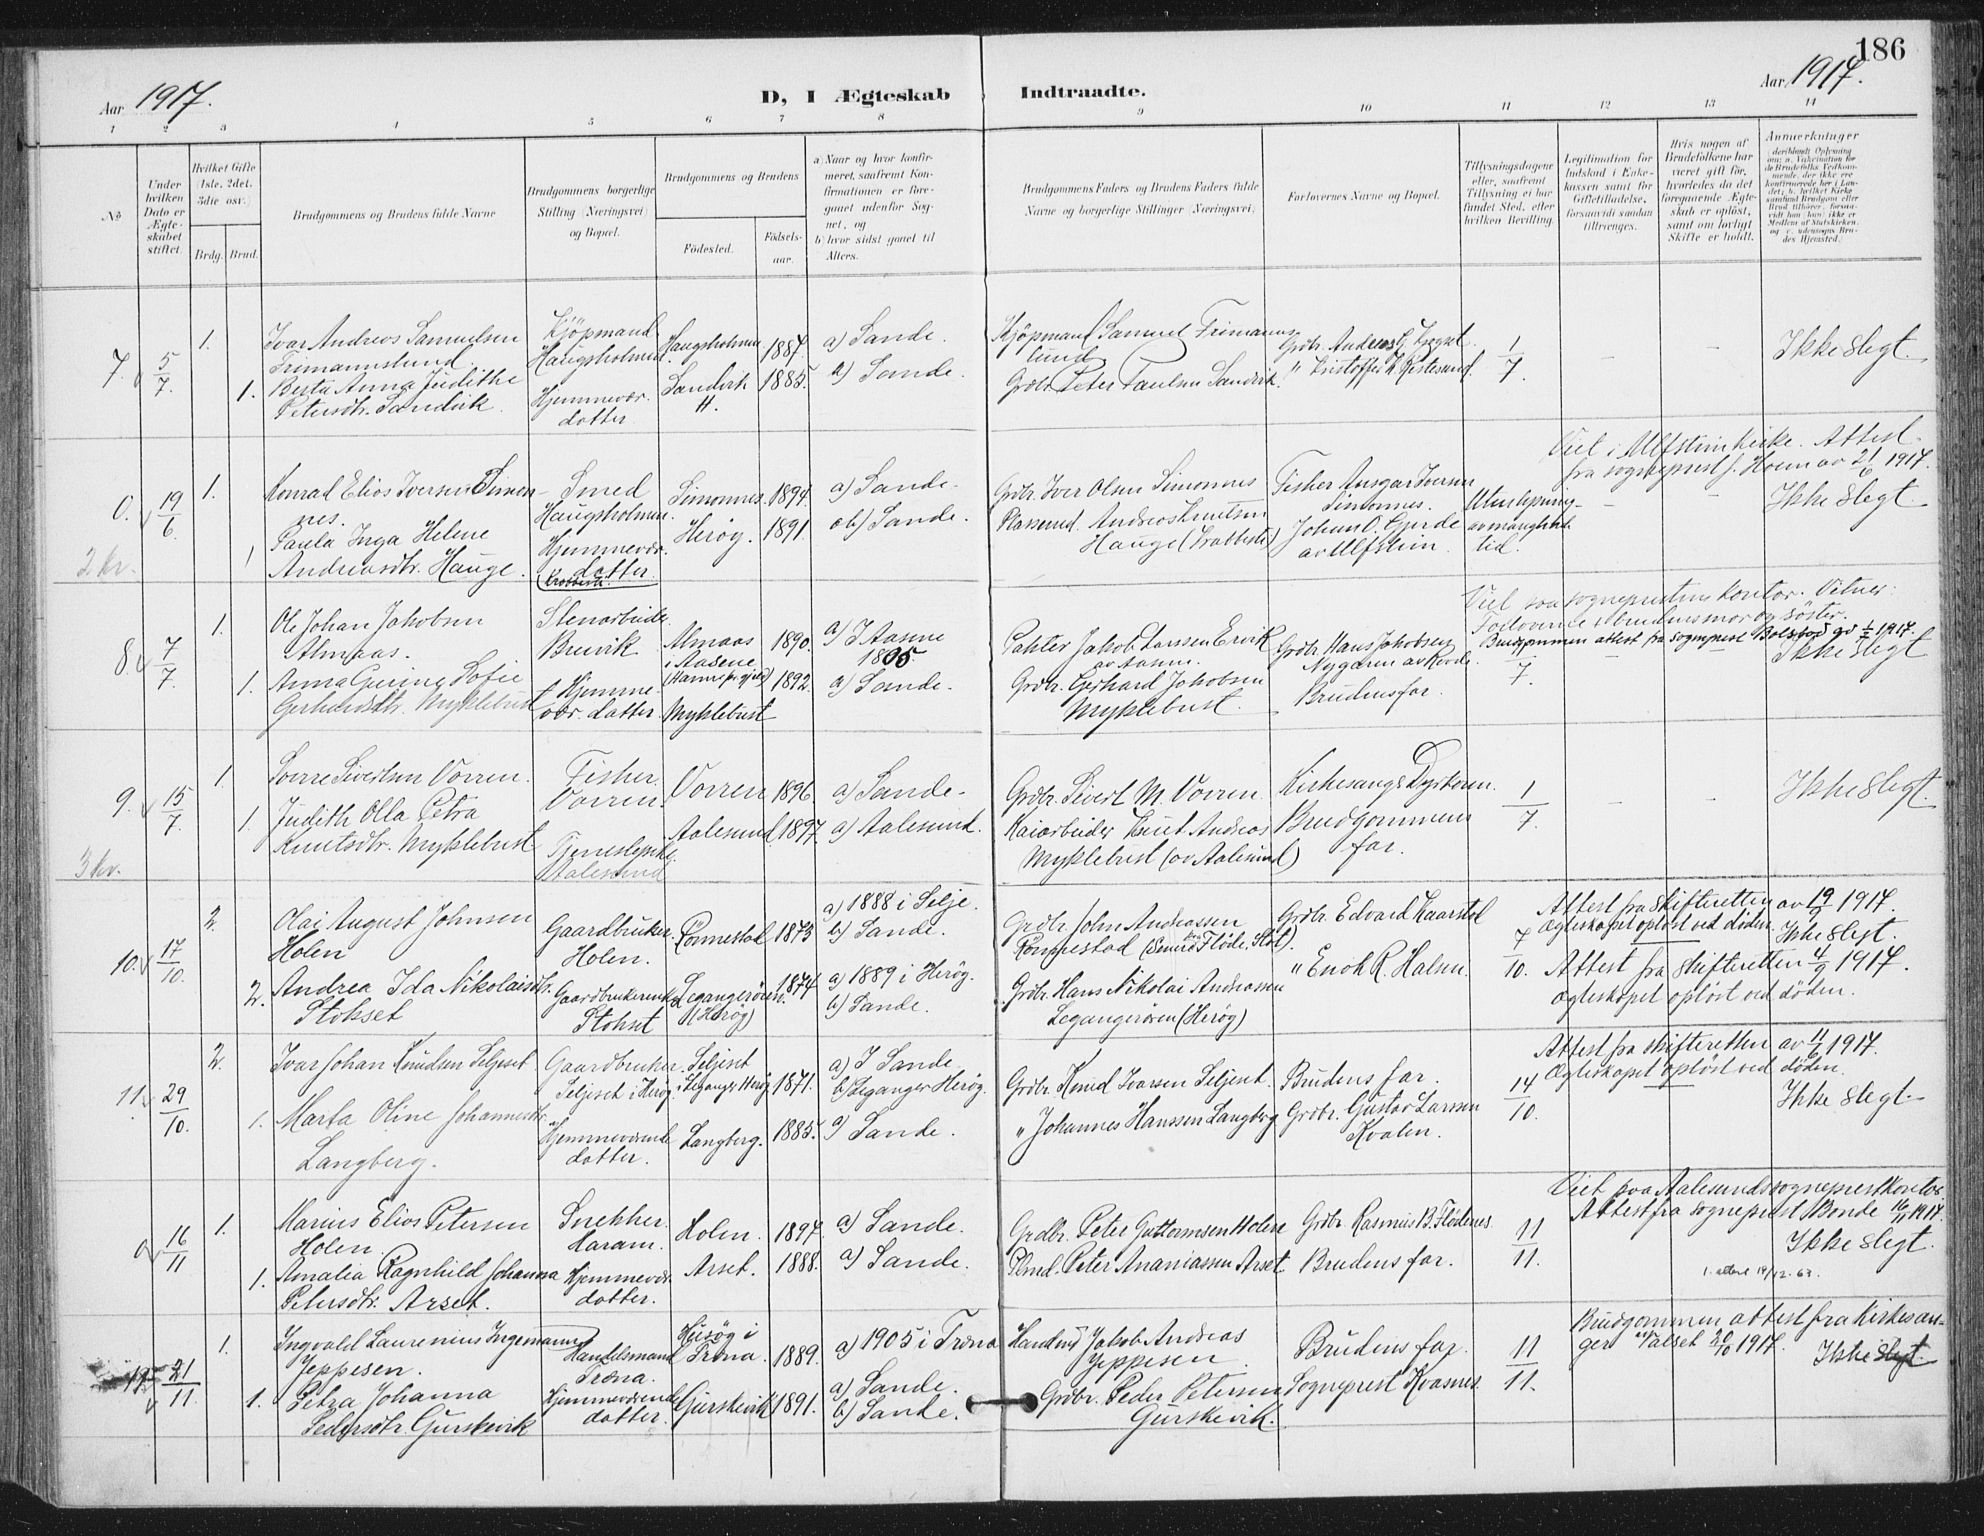 186
Aar 1917.
D, I Ægteskab Indtraadte.
Aar 1917.
1 2 3 4 5 6 7 8 9 10 11 12 13 14
No
Under hvilken Dato er Ægteskabet stiftet.
Hvilket Gifte (1ste, 2det, 3die osv.)
Brdg. Brud.
Brudgommens og Brudens fulde Navne
Brudgommens borgerlige Stilling (Næringsvei) og Bopæl.
Brudgommens og Brudens
Fødested. Fødselsaar.
a) Naar og hvor konfirmeret, saafremt Konfirmationen er foregaaet udenfor Sognet, og
b) hvor sidst gaaet til Alters.
Brudgommens Faders og Brudens Faders fulde Navne og borgerlige Stillinger (Næringsvei)
Forlovernes Navne og Bopæl.
Tillysningsdagene eller, saafremt Tillysning ei har fundet Sted, efter hvilken Bevilling.
Legitimation for Indskud i Enkekassen samt for Giftetilladelse, forsaavidt saadan tiltrænges.
Hvis nogen af Brudefolkene har været gift før, hvorledes da det foregaaende Ægteskab er opløst, samt om lovligt Skifte er holdt.
Anmerkninger
7. 5/7. 1.
Ivar Andreas Samuelsen
Frimannslund
1. Berta Anna Judithe
Petersdtr. Sandvik
Kjöpmand
Haugsholmen
Hjemmevær.
datter
Haugsholmen
Sandvik
1887.
1885.
a) Sande.
a) Sande.
Kjöpmand Samuel Frimanns
lund
Grdbr. Peter Paulsen Sandvik.
Grdbr. Andreas G. Gjegset.
" Kristoffer K. Kjestesund.
1/7.
Ikke slegt.
0. 19/6. 1.
2 kr.
Konrad Elias Iversen Simon-
nes.
1 Paula Inga Helene
Andreasdtr. Hauge.
Smed
Haugsholmen.
Hjemmevær.
datter.
Simonnes.
Herög.
1894.
1891.
a) Sande.
ab) Sande.
Grdbr. Iver Olsen Simonnes
Plassmd. Andreas Knutsen
Hauge
Fisker Ansgar Iversen
Simonnes.
Johan O. Gjerde
av Ulfstein.
tid.
Viel i Ulfstein kirke. Attest
fra sogneprest J. Hoem av 21/6 1917.
Ikke slegt
8. 7/7. 1.
Ole Johan Jakobsen
Almaas.
1. Anna Gurine Sofie
Gerhardsdtr. Myklebust
Stenarbeider
Breivik
Hjemme
vær. datter.
Almaas
i Aasene
Myklebust
1890.
1892.
a) I Aasene
1805.
a) Sande.
Pakter Jakob Larssen Ervik
av Aasne.
Grdbr. Gerhard Jakobsen
Myklebust.
Grdbr. Hans Jakobsen
Nygaren av Kvode
Brudens far.
1/7.
Viel paa sogneprestens kontor. Vitner:
Forloverne i brudens mor og söster.
Brudgommen attest fra sogneprest Bolstad gd 1/2 1917.
Ikke slegt
9. 15/7. 1.
3 kr.
Sverre Sivertsen Vorren.
1. Judith Olla Petra
Knutsdtr. Myklebust
Fisker
Vorren.
Tjenestepike
Aalesund
Vorren
Aalesund
1896.
1897.
a) Sande.
a) Aalesund.
Grdbr. Sivert M. Vorren.
Kaiarbeider Knut Andreas
Myklebust (av Aalesund)
Kirkesang. Dyskoren
Brudgommens
far.
1/7.
Ikke slegt.
10. 17/10. 2.
Olai August Johnsen
Holen
2. Andrea Ida Nikolaisdtr.
Stokset
Gaardbruker.
Holen.
Gaardbrukerenke
Stokset
Rönnestad
Legangerösen.
(Herög)
1873
1874
a) 1888 i Selje.
b) Sande.
a) 1889 i Herög.
b) Sande.
Grdbr. John Andreassen
Rönnestad
Grdbr. Hans Nikolai Andreassen
Legangerösen (Herög)
Grdbr. Edvard Kaarstad
" Enok R. Halsen.
7/10.
Attest fra skifteretten av 19/9 1917.
Ægteskapet oplöst ved döden. Ikke slegt.
Attest fra skifteretten 4/9 1917.
Ægteskapet oplöst ved döden.
11. 29/10. 2.
Ivar Johan Knudsen Seljeset
1. Marta Oline Johannesdtr.
Langberg.
Gaardbruker.
Seljeset i Herög.
Hjemmeværende
datter.
Seljeset
i Leganger Herög
Langberg.
1871.
1885.
a) I Sande.
b) Leganger Herög.
a) Sande.
Grdbr. Knud Ivarsen Seljeset.
" Johannes Hanssen Langberg
Brudens far.
Grdbr. Gustav Larsen
Kvalen.
14/10.
Attest fra skifteretten av 11/6 1917.
Ægteskapet oplöst ved döden.
Ikke slegt.
0 16/11 1.
Marius Elias Petersen
Holen
1. Amalia Ragnhild Johanna
Petersdtr. Arset.
Snekker.
Haram.
Hjemmevær.
datter.
Holen.
Arset.
1897.
1888.
a) Sande.
a) Sande.
Grdbr. Peter Guttormsen Holen
Plmd. Peter Ananiassen Arset
Grdbr. Rasmus B. Flödenes
Brudens far.
11/11.
Viet paa Aalesunds sogneprestkontor.
Attest fra sogneprest Bonde 16/11 1917.
Ikke slegt.
1. attest 19/12. 63.
12 21/11. 1.
Ingvald Laurenius Ingemann
Jeppesen.
1. Petra Johanna
Pedersdtr. Gurskevik
Handelsmand
Træna.
Hjemmeværende
datter.
Husög i
Træna.
Gurskevik
1889.
1891.
a) 1905 i Træna
a) Sande.
b) Sande.
Handmd. Jakob Andreas
Jeppesen
Grdbr. Peder Petersen
Gurskevik.
Brudens far.
Sogneprest Kvasnes.
11/11.
Brudgommen attest fra kirkesan-
ger Valset 20/10 1917. Ikke slegt.